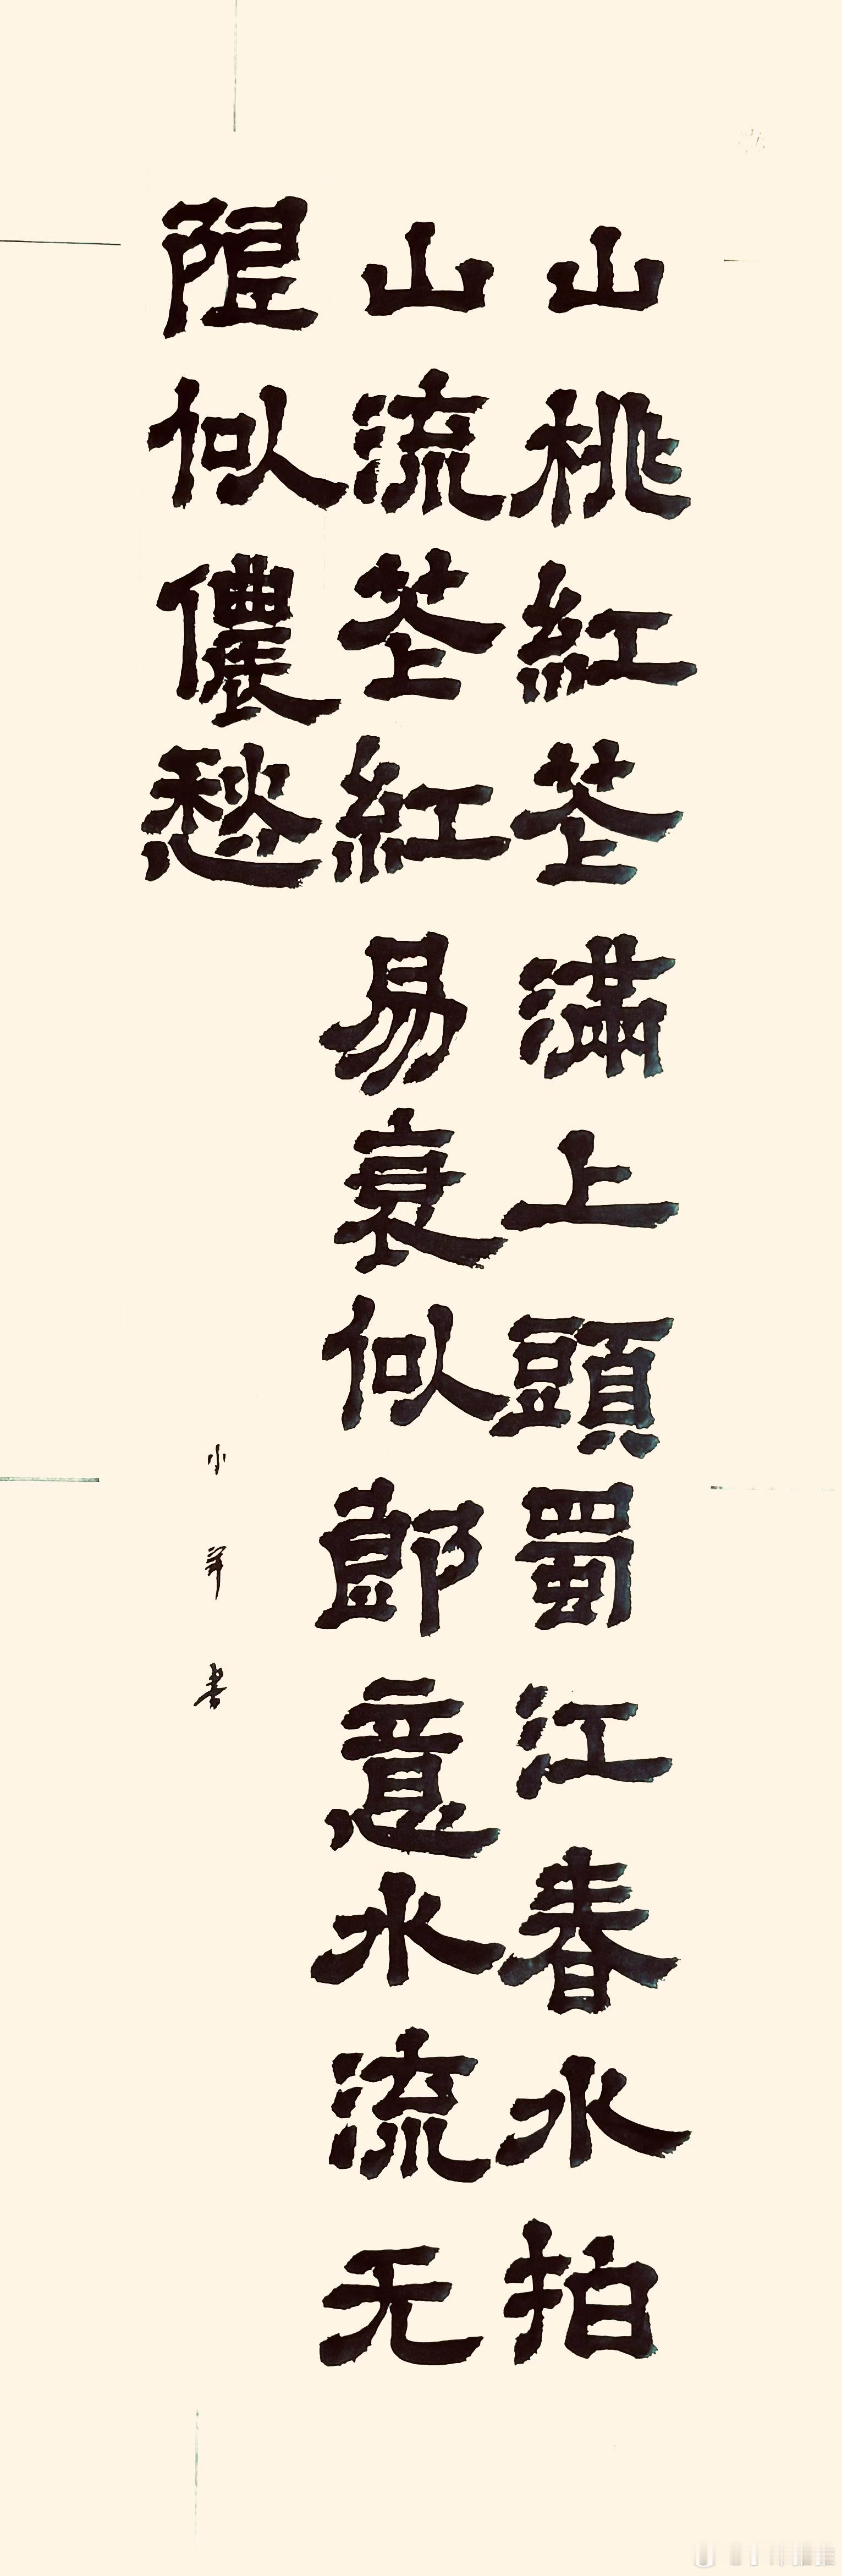 山桃紅花滿上頭蜀江春水拍
山流花紅易衰似郎意水流无
限似儂愁
小 書